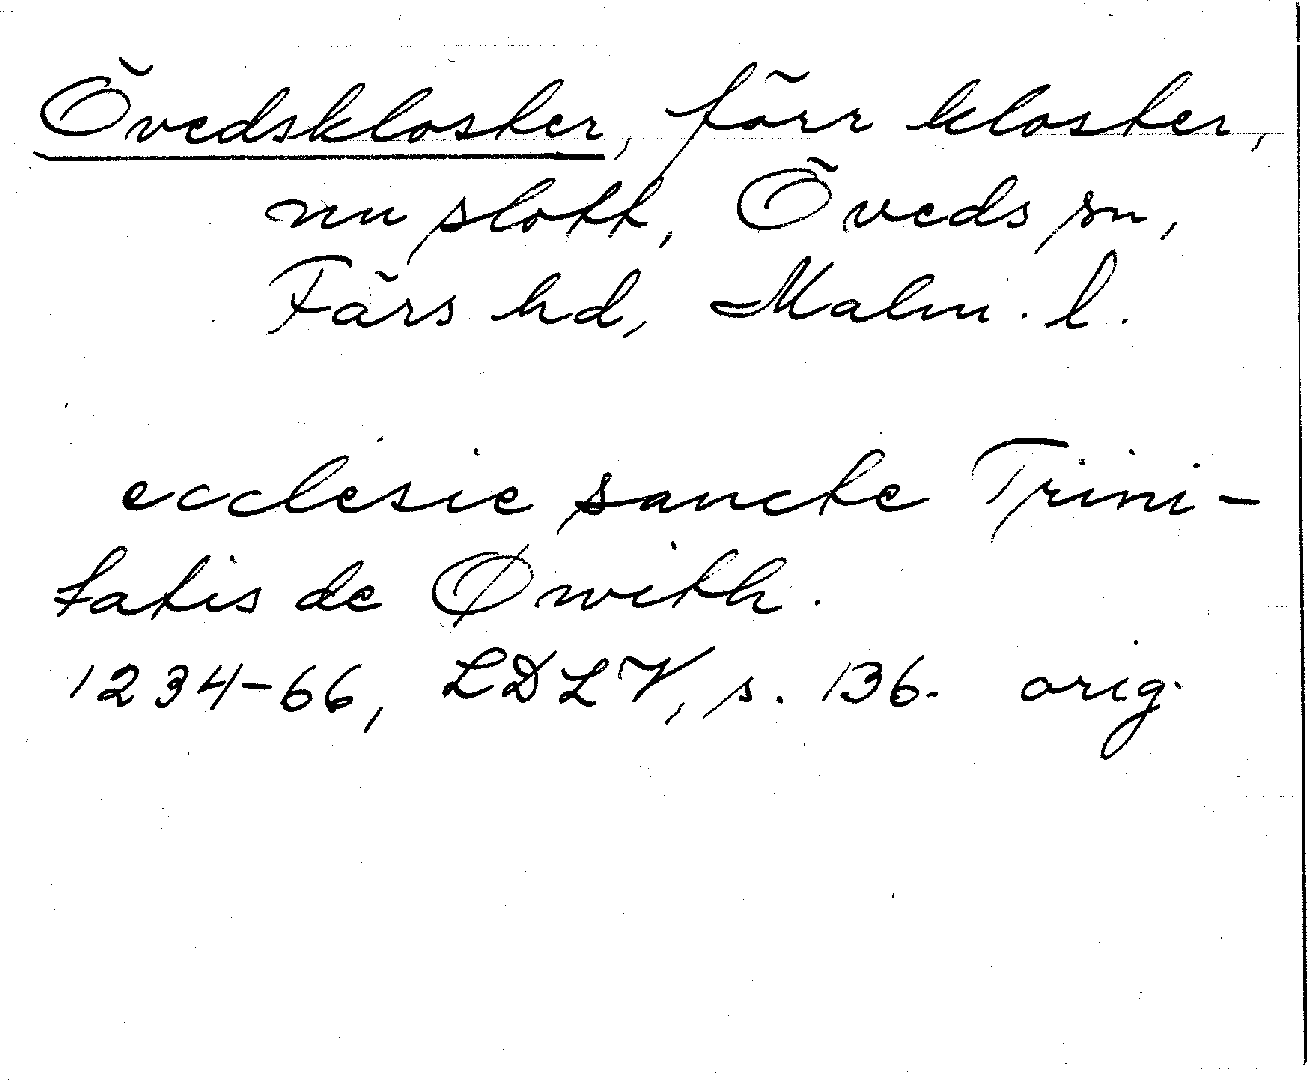 Övedskloster, förr kloster,
nu slott, Öveds sn,
Färs hd, Malm. l.
ecclesie sancte Trini-
tatis de Øwith.
1234-66, LDLV, s. 136. orig.